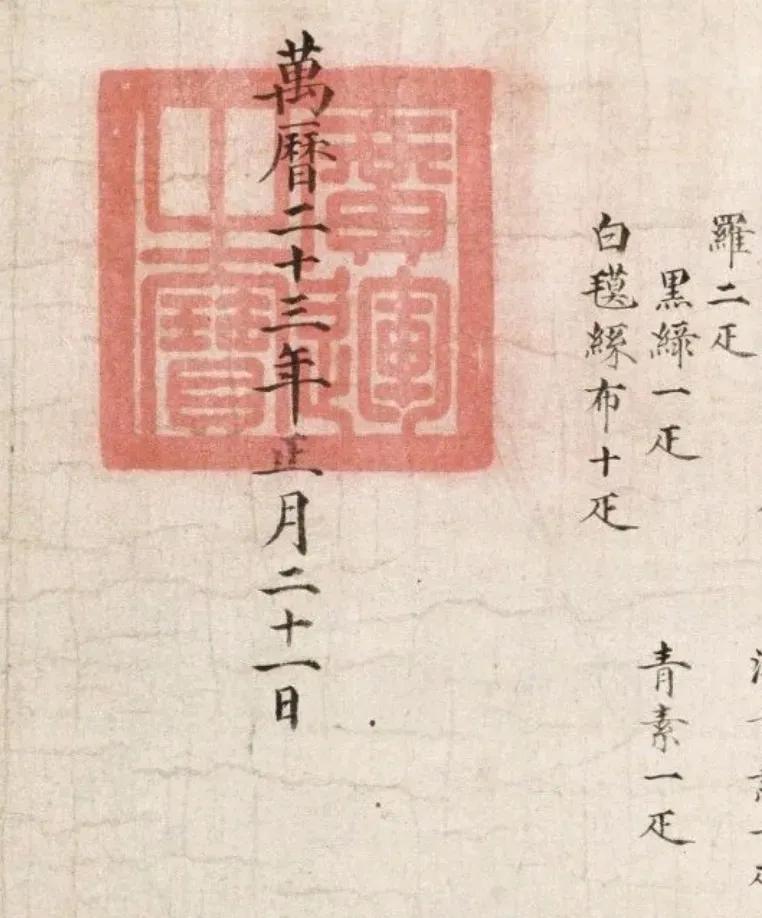 羅二疋
黑綠一疋
青素一疋
白氁絲布十疋
萬曆二十三年正月二十一日
廣運之寶